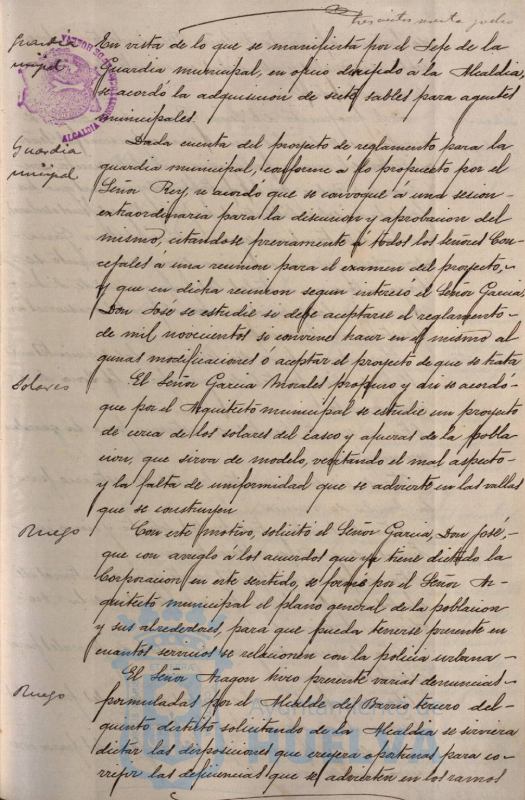 Guardia
municipal
En vista de lo que se manifiesta por el Jefe de la
Guardia municipal, en oficio dirigido á la Alcaldia,
se acordó la adquisicion de siete sables para agentes
municipales.
ALCALDIA
Guardia
municipal
Dada cuenta del proyecto de reglamento para la
guardia municipal, conforme á lo propuesto por el
Señor Rey, se acordó que se convoque á una sesion
extraordinaria para la discusion y aprobacion del
mismo, citandose previamente á todos los señores Con-
cejales á una reunion para el examen del proyecto,
y que en dicha reunion segun interesó el Señor Garcia
Don José se estudie si debe aceptarse el reglamento
de mil novecientos si conviene hacer en el mismo al
gunas modificaciones ó aceptar el proyecto de que se trata
Solares
El Señor Garcia Morales propuso y asi se acordó
que por el Arquitecto municipal se estudie un proyecto
de cerca de los solares del casco y afueras de la pobla-
cion, que sirva de modelo, evitando el mal aspecto
y la falta de uniformidad que se advierte en las vallas
que se construyen
Ruego
Con este motivo, solicitó el Señor Garcia, Don José,
que con arreglo á los acuerdos que ya tiene dictado la
Corporacion en este sentido, se forme por el Señor Ar-
quitecto municipal el plano general de la poblacion
y sus alrededores, para que pueda tenerse presente en
cuantos servicios se relacionen con la policia urbana
Ruego
El Señor Aragon hizo presente varias denuncias
formuladas por el Alcalde del Barrio tercero del
quinto distrito solicitando de la Alcaldia se sirviera
dictar las disposiciones que creyera oportunas para co-
rregir las deficiencias que se advierten en los ramos